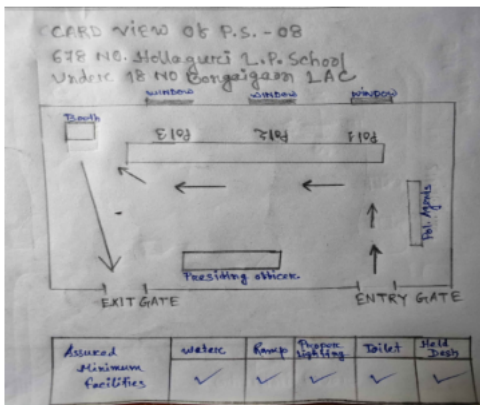 CARD VIEW OF P.S. - 08
678 NO. Hollagurci L.P. School
Undere 18 NO Bongaigaon LAC
WINDOW WINDOW WINDOW
Booth
Pol 3 Pol 2 Pol 1
Pol. Agents
Presiding officer
EXIT GATE ENTRY GATE
Assured Minimum facilities
Watere
Ramp
Propore Lighting
Toilet
Held Desh